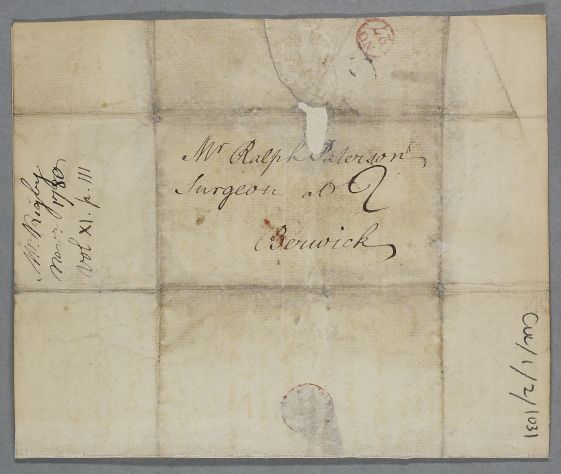 Mr. Ralph Paterson
Surgeon at
2
Berwick
Mr. Rigby
Novr. 1780
Vol XI. p. 111
Cul/1/2/1031
27
NO